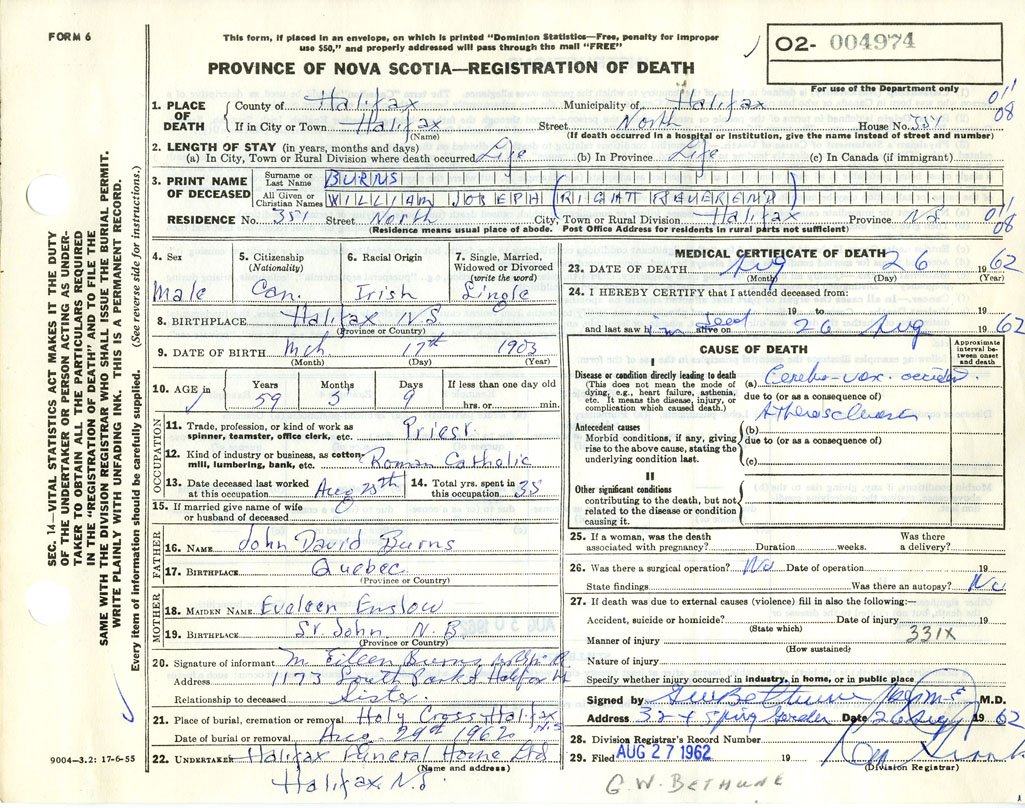 FORM 6
This form, if placed in an envelope, on which is printed "Dominion Statistics—Free, penalty for improper
use $50," and properly addressed will pass through the mail "FREE"
PROVINCE OF NOVA SCOTIA—REGISTRATION OF DEATH
02- 004974
For use of the Department only
1. PLACE OF DEATH
County of Halifax Municipality of Halifax
If in City or Town Halifax Street North House No. 351
(Name) (If death occurred in a hospital or institution, give the name instead of street and number)
01'
08
2. LENGTH OF STAY (in years, months and days)
(a) In City, Town or Rural Division where death occurred Life (b) In Province Life (c) In Canada (if immigrant)
3. PRINT NAME OF DECEASED
Surname or Last Name BURNS
All Given or Christian Names WILLIAM JOSEPH (RIGHT REVEREND)
RESIDENCE No. 351 Street North City, Town or Rural Division Halifax Province N.S
(Residence means usual place of abode. Post Office Address for residents in rural parts not sufficient)
01'
08
4. Sex
Male
5. Citizenship
(Nationality)
Can.
6. Racial Origin
Irish
7. Single, Married,
Widowed or Divorced
(write the word)
Single
8. BIRTHPLACE Halifax N.S
(Province or Country)
9. DATE OF BIRTH Mch 17th 1903
(Month) (Day) (Year)
10. AGE in
Years Months Days If less than one day old
59 5 9 hrs. or min.
OCCUPATION
11. Trade, profession, or kind of work as
spinner, teamster, office clerk, etc. Priest
12. Kind of industry or business, as cotton-
mill, lumbering, bank, etc. Roman Catholic
13. Date deceased last worked
at this occupation Aug 25th
14. Total yrs. spent in
this occupation 35
15. If married give name of wife
or husband of deceased
FATHER
16. NAME John David Burns
17. BIRTHPLACE Quebec
(Province or Country)
MOTHER
18. MAIDEN NAME Eveleen Enslow
19. BIRTHPLACE St. John N.B
(Province or Country)
20. Signature of informant M. Eileen Burns
Address 1173 South Park St Halifax
Relationship to deceased Sister
21. Place of burial, cremation or removal Holy Cross Halifax N.S
Date of burial or removal Aug 29th 1962
22. UNDERTAKER Halifax Funeral Home Ltd
(Name and address)
Halifax N.S
9004—3.2: 17-6-55
MEDICAL CERTIFICATE OF DEATH
23. DATE OF DEATH Aug 26 1962
(Month) (Day) (Year)
24. I HEREBY CERTIFY that I attended deceased from:
19 to 19
and last saw him dead alive on 26 Aug 1962
CAUSE OF DEATH
Approximate
interval be-
tween onset
and death
I
Disease or condition directly leading to death
(This does not mean the mode of
dying, e.g., heart failure, asthenia,
etc. It means the disease, injury, or
complication which caused death.)
(a) Cerebro-vas. accident
due to (or as a consequence of)
Atherosclerosis
Antecedent causes
Morbid conditions, if any, giving
rise to the above cause, stating the
underlying condition last.
(b)
due to (or as a consequence of)
(c)
II
Other significant conditions
contributing to the death, but not
related to the disease or condition
causing it.
25. If a woman, was the death
associated with pregnancy? Duration weeks. Was there
a delivery?
26. Was there a surgical operation? No Date of operation 19
State findings Was there an autopsy? No
27. If death was due to external causes (violence) fill in also the following:—
Accident, suicide or homicide? Date of injury 19
(State which)
331X
Manner of injury
(How sustained)
Nature of injury
Specify whether injury occurred in industry, in home, or in public place
Signed by G W Bethune M.D.
Address 324 Spring Garden Date 26 Aug 1962
28. Division Registrar's Record Number
29. Filed AUG 27 1962 19
(Division Registrar)
G.W. BETHUNE
SEC. 14—VITAL STATISTICS ACT MAKES IT THE DUTY
OF THE UNDERTAKER OR PERSON ACTING AS UNDER-
TAKER TO OBTAIN ALL THE PARTICULARS REQUIRED
IN THE "REGISTRATION OF DEATH" AND TO FILE THE
SAME WITH THE DIVISION REGISTRAR WHO SHALL ISSUE THE BURIAL PERMIT.
WRITE PLAINLY WITH UNFADING INK. THIS IS A PERMANENT RECORD.
Every item of information should be carefully supplied. (See reverse side for instructions.)